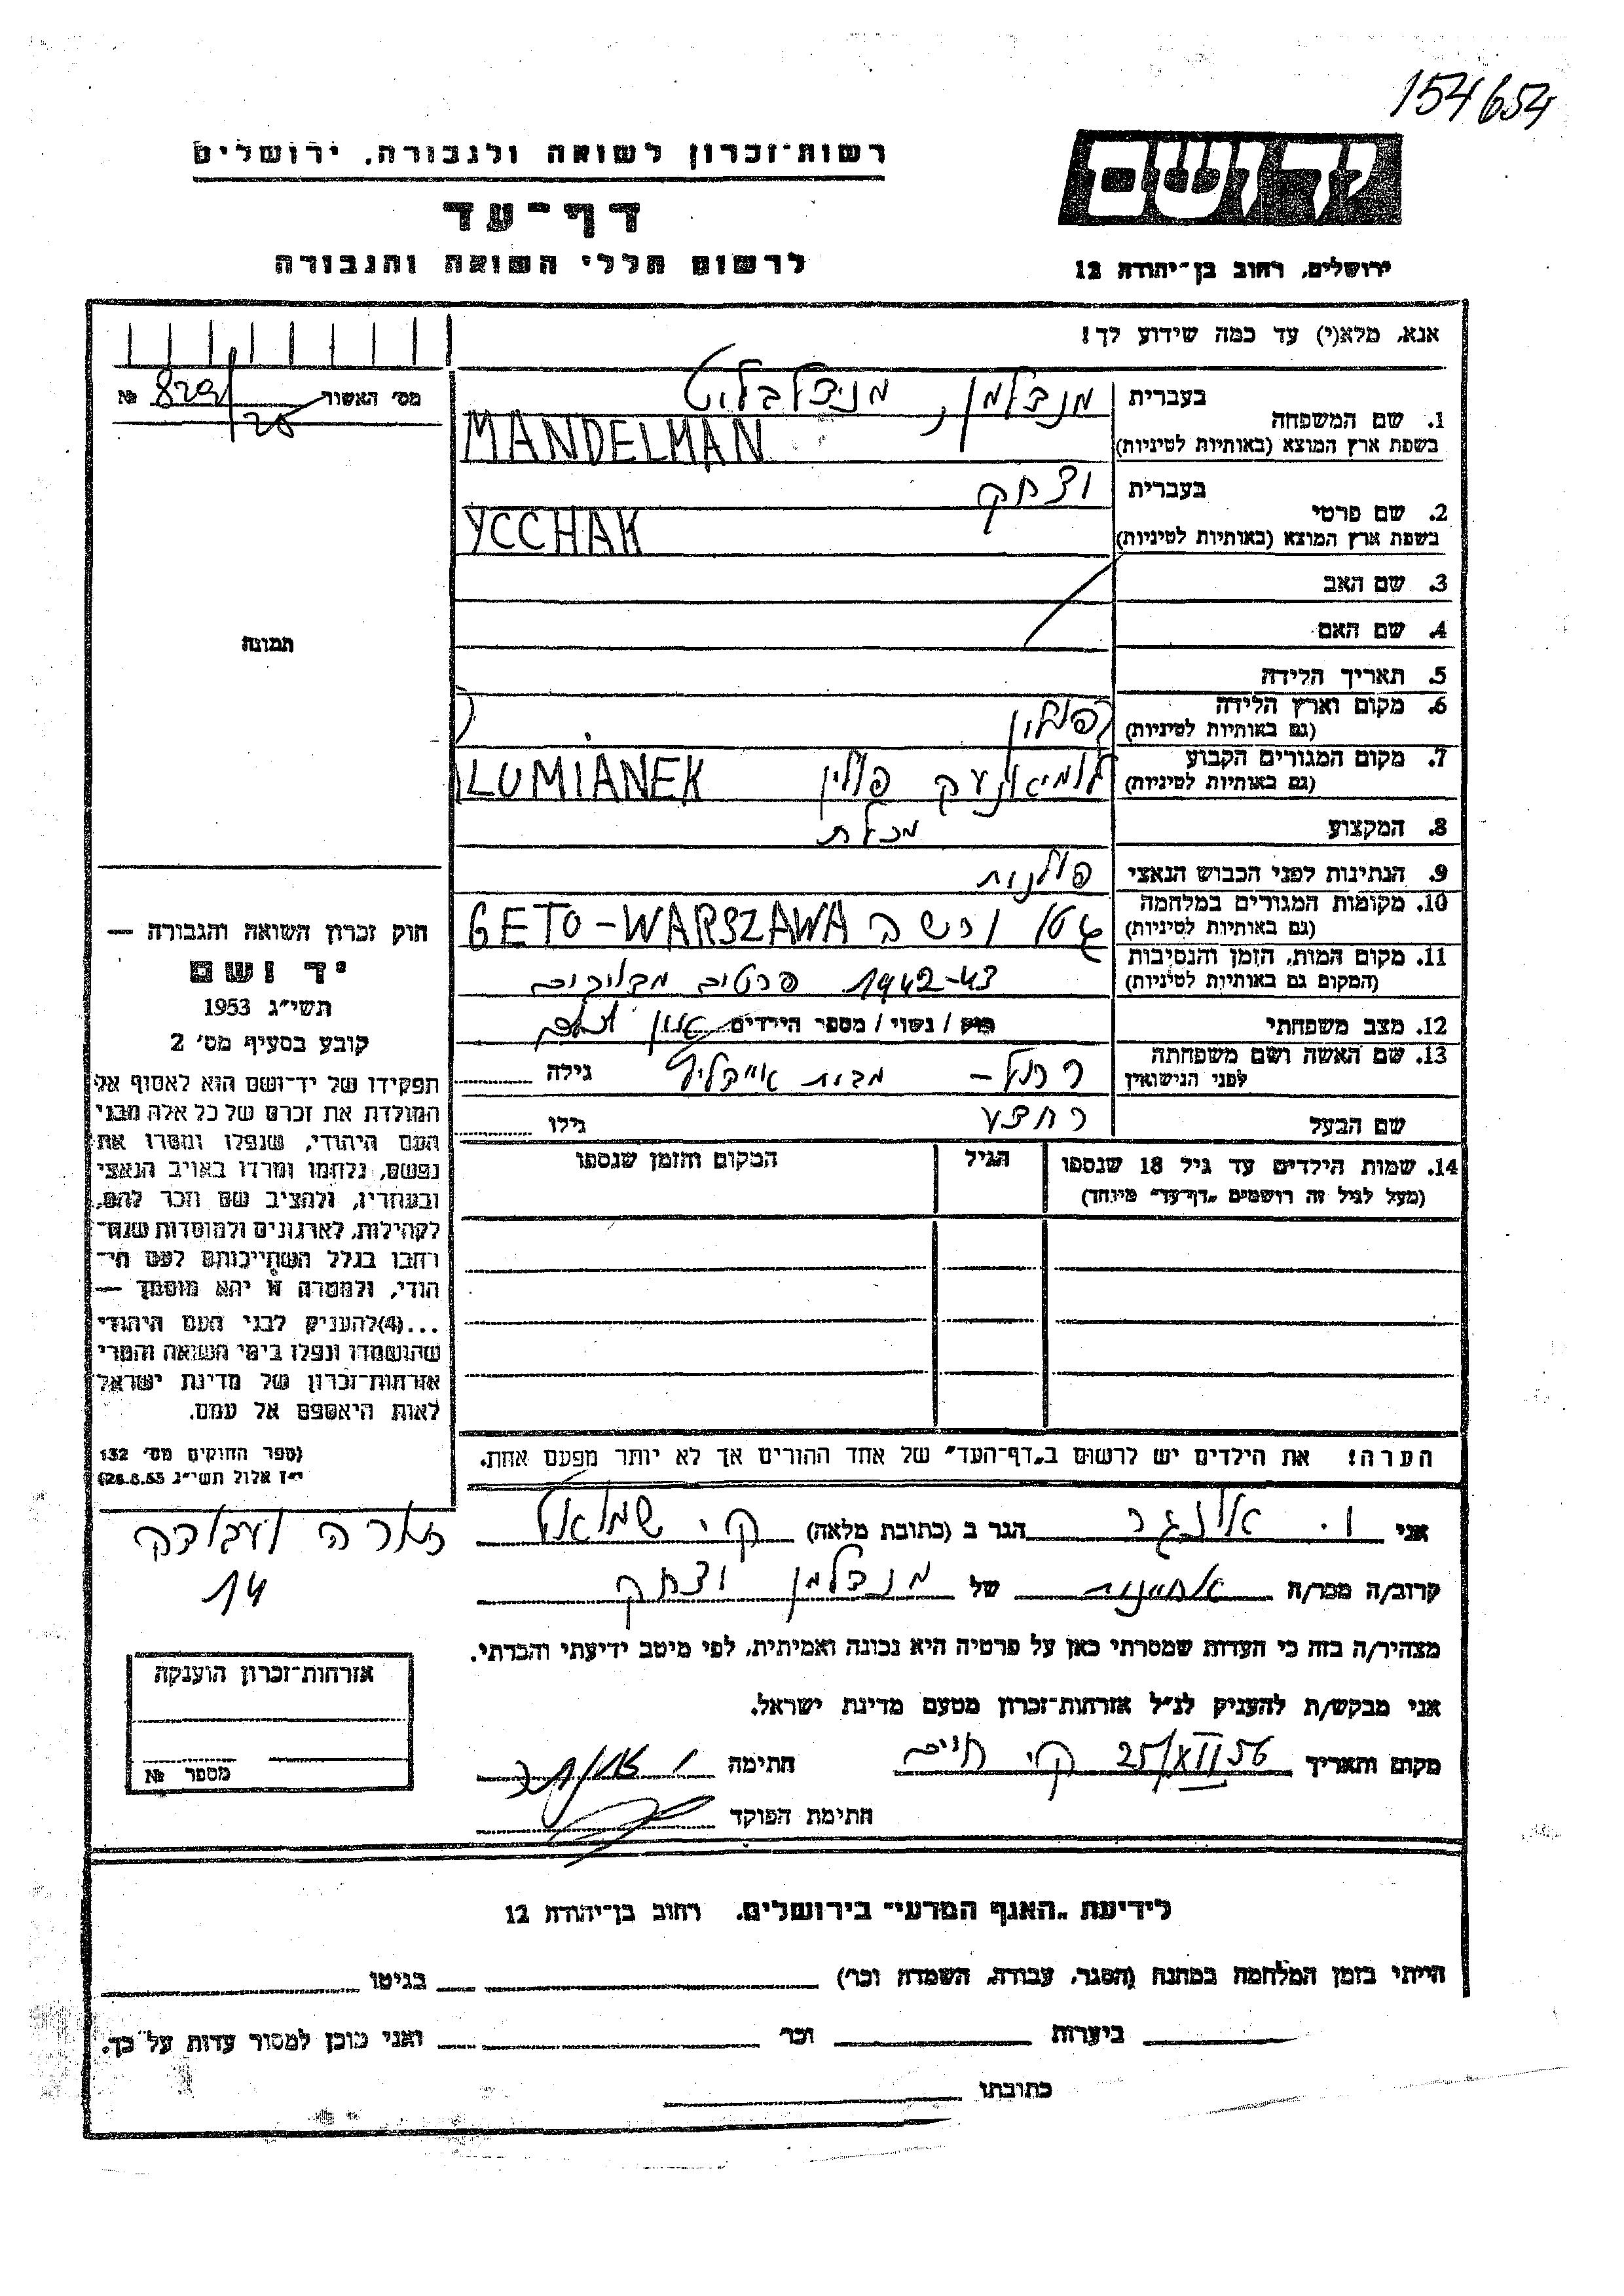 154654
יד ושם
רשות־זכרון לשואה ולגבורה, ירושלים
דף־עד
לרשום חללי השואה והגבורה
ירושלים, רחוב בן־יהודה 12
אנא, מלא(י) עד כמה שידוע לך!
מס׳ האשור № 829/
1. שם המשפחה
בעברית מנדלמן,
בשפת ארץ המוצא (באותיות לטיניות) MANDELMAN
2. שם פרטי
בעברית יצחק
בשפת ארץ המוצא (באותיות לטיניות) YCCHAK
3. שם האב
4. שם האם
5. תאריך הלידה
6. מקום וארץ הלידה פולין
(גם באותיות לטיניות)
7. מקום המגורים הקבוע פולין LUMIANEK
(גם באותיות לטיניות)
8. המקצוע
9. הנתינות לפני הכבוש הנאצי פולנית
10. מקומות המגורים במלחמה GETO-WARSZAWA
(גם באותיות לטיניות)
11. מקום המות, הזמן והנסיבות 1942-43 פרטים
(המקום גם באותיות לטיניות)
12. מצב משפחתי רוק / נשוי / מספר הילדים
13. שם האשה ושם משפחתה מבית גילה
לפני הנישואין
שם הבעל גילו
14. שמות הילדים עד גיל 18 שנספו הגיל המקום והזמן שנספו
(מעל לגיל זה רושמים „דף־עד״ מיוחד)
הערה! את הילדים יש לרשום ב„דף־העד״ של אחד ההורים אך לא יותר מפעם אחת.
תמונה
חוק זכרון השואה והגבורה —
יד ושם
תשי״ג 1953
קובע בסעיף מס׳ 2
תפקידו של יד־ושם הוא לאסוף אל
המולדת את זכרם של כל אלה מבני
העם היהודי, שנפלו ומסרו את
נפשם, נלחמו ומרדו באויב הנאצי
ובעוזריו, ולהציב שם וזכר להם,
לקהילות, לארגונים ולמוסדות שנח־
רבו בגלל השתייכותם לעם הי־
הודי, ולמטרה זו יהא מוסמך —
...(4)להעניק לבני העם היהודי
שהושמדו ונפלו בימי השואה והמרי
אזרחות־זכרון של מדינת ישראל
לאות היאספם אל עמם.
(ספר החוקים מס׳ 132
י״ז אלול תשי״ג 28.8.53)
אני הגר ב (כתובת מלאה) שמואל
14
קרוב/ה מכר/ה של מנדלמן יצחק
מצהיר/ה בזה כי העדות שמסרתי כאן על פרטיה היא נכונה ואמיתית, לפי מיטב ידיעתי והכרתי.
אני מבקש/ת להעניק לנ״ל אזרחות־זכרון מטעם מדינת ישראל.
מקום ותאריך 25/XII 56 חתימה
חתימת הפוקד
אזרחות־זכרון הוענקה
מספר №
לידיעת „האגף המדעי״ בירושלים, רחוב בן־יהודה 12
הייתי בזמן המלחמה במחנה (הסגר, עבודה, השמדה וכו׳) בגיטו
ביערות וכו׳ ואני מוכן למסור עדות על כך.
כתובתו